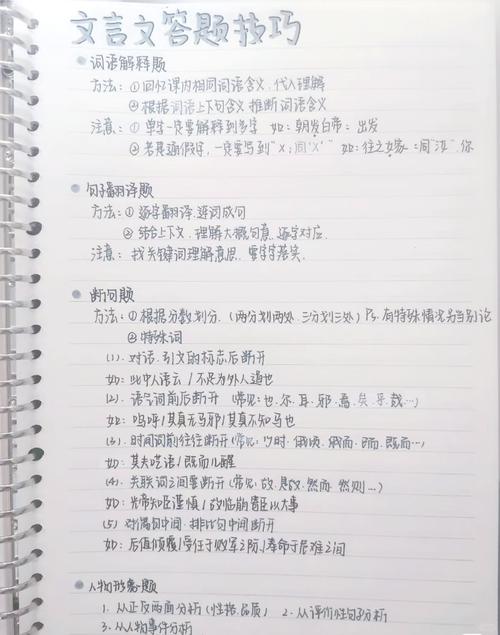 文言文答题技巧
词语解释题
方法：①回忆课内相同词语含义，代入理解
②根据词语上下句含义推断词语含义
注意：①单字一定要解释到多字 如：朝发白帝：出发
②若是通假字，一定要写到"X：同'X'" 如：往之女家：同"汝"，你
句子翻译题
方法：①逐字翻译，连词成句
②结合上下文，理解大概句意，逐字对应．
注意：找关键词理解意思，要字字落实．
断句题
方法：①根据分数划分．（两分划两处，三分划三处）Ps．有特殊情况另当别论
②特殊词
(1)．对话，引文的标志后断开
如：此中人语云／不足为外人道也
(2)．语气词前后断开（常见：也．尔．耳．邪．焉．矣．乎．哉…）
如：呜呼／其真无马邪／其真不知马也
(3)．时间词前往往断开（常见：少时．俄顷．俄而．已而．既而…）
如：其夫呓语／既而儿醒
(4)．关联词之间要断开（常见：故．是故．然而．然则…）
如：先帝知臣谨慎／故临崩寄臣以大事
(5)．对偶句中间．排比句中间断开
如：后值倾覆／受任于败军之际／奉命于危难之间
人物形象题
1．从正反两面分析（性格，品质） 2．从评价性句子分析
3．从人物事件分析